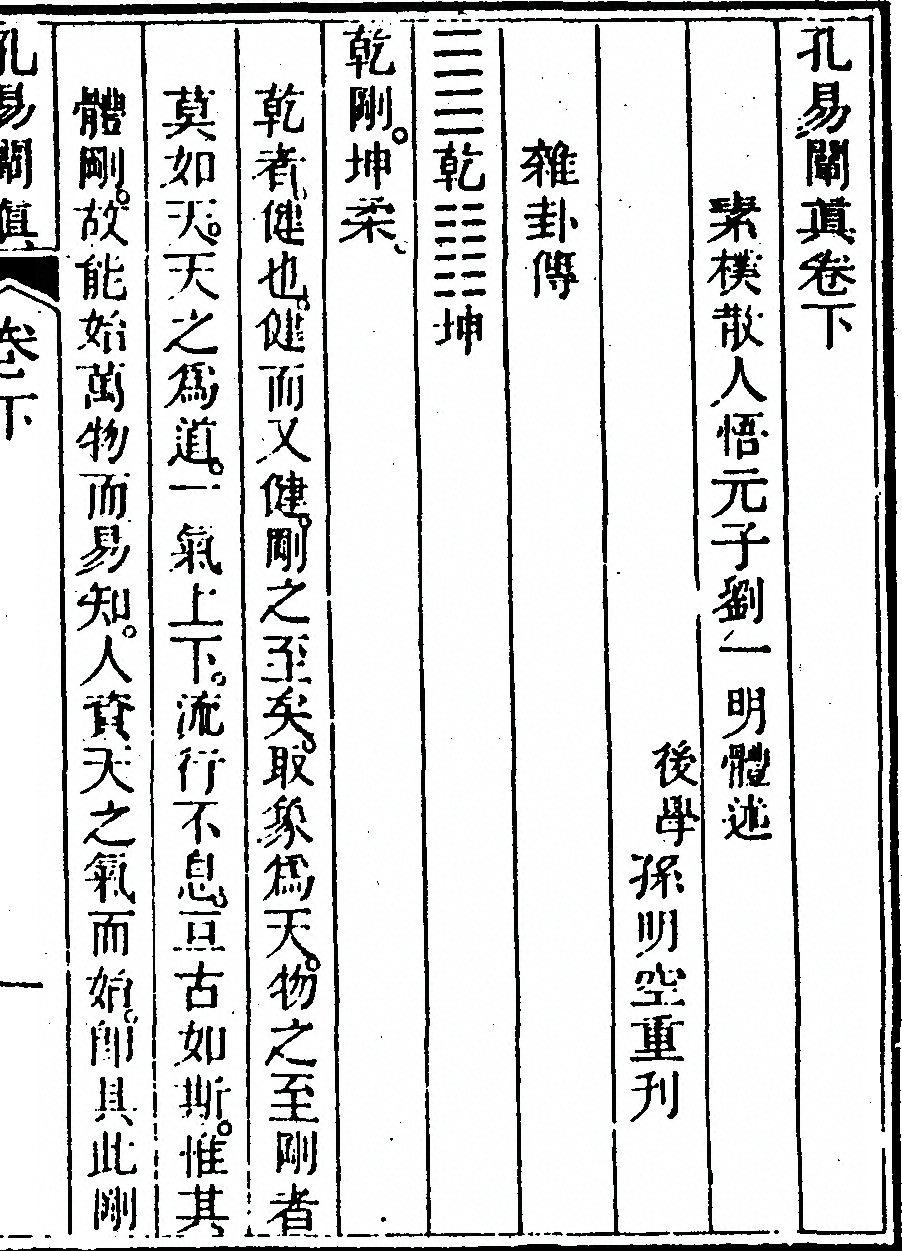 孔易闡眞卷下
素樸散人悟元子劉一明體述
後學孫明空重刊
雜卦傳
䷀乾䷁坤
乾剛。坤柔、
乾者、健也。健而又健。剛之至矣。取象爲天。物之至剛者
莫如天。天之爲道。一氣上下。流行不息。亘古如斯。惟其
體剛。故能始萬物而易知。人資天之氣而始。卽具此剛
孔易闡眞、
卷下
一